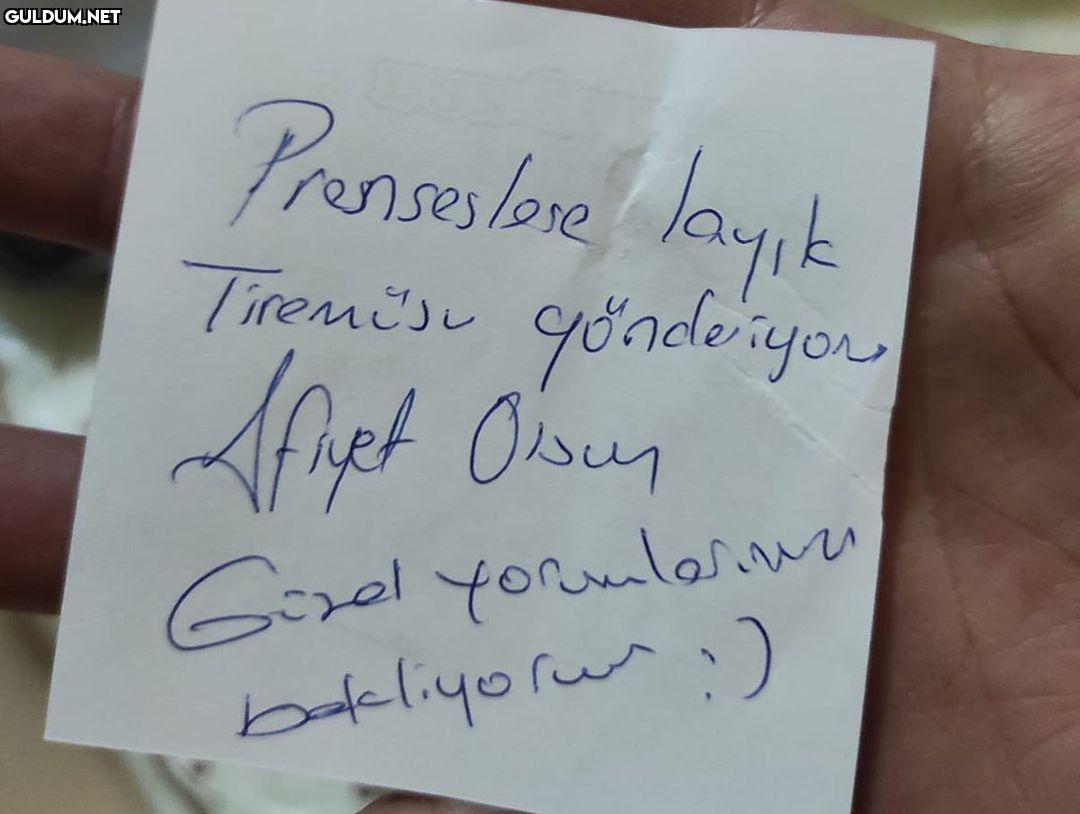 GULDUM.NET
Prenseslere layık
Tiremüsu gönderiyoru
Afiyet Olsun
Güzel yorumlarınızı
bekliyoruz :)